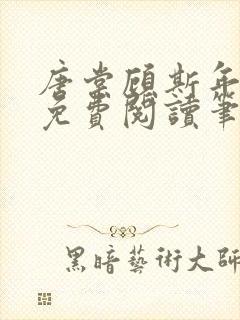 唐棠顧斯年
免費閱讀筆
黑暗藝術大師